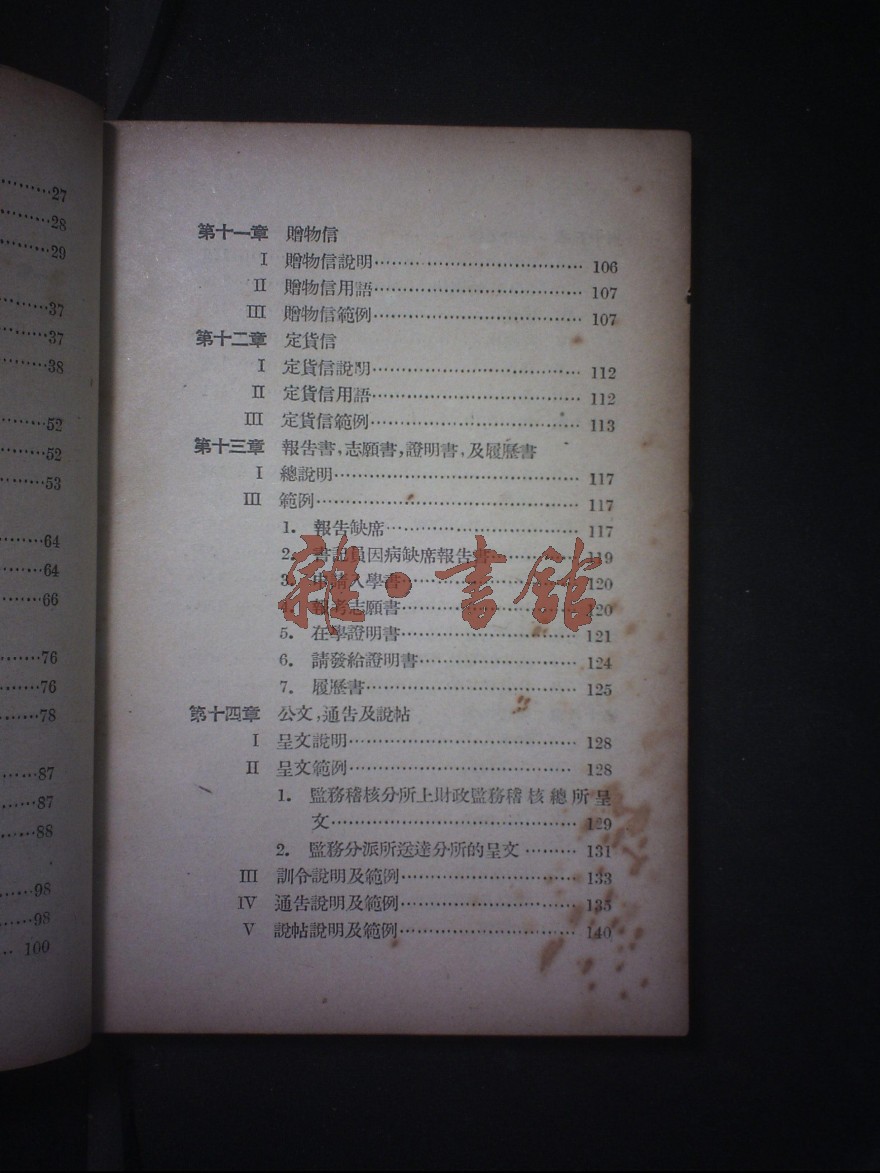 27
28
29
37
37
38
52
52
53
64
64
66
76
76
78
87
87
88
98
98
100
第十一章 贈物信
I 贈物信說明 106
II 贈物信用語 107
III 贈物信範例 107
第十二章 定貨信
I 定貨信說明 112
II 定貨信用語 112
III 定貨信範例 113
第十三章 報告書,志願書,證明書,及履歷書
I 總說明 117
III 範例 117
1. 報告缺席 117
2. 書記員因病缺席報告書 119
3. 申請入學書 120
4. 報考志願書 120
5. 在學證明書 121
6. 請發給證明書 124
7. 履歷書 125
第十四章 公文,通告及說帖
I 呈文說明 128
II 呈文範例 128
1. 監務稽核分所上財政監務稽核總所呈
文 129
2. 監務分派所送達分所的呈文 131
III 訓令說明及範例 133
IV 通告說明及範例 135
V 說帖說明及範例 140
雜·書館